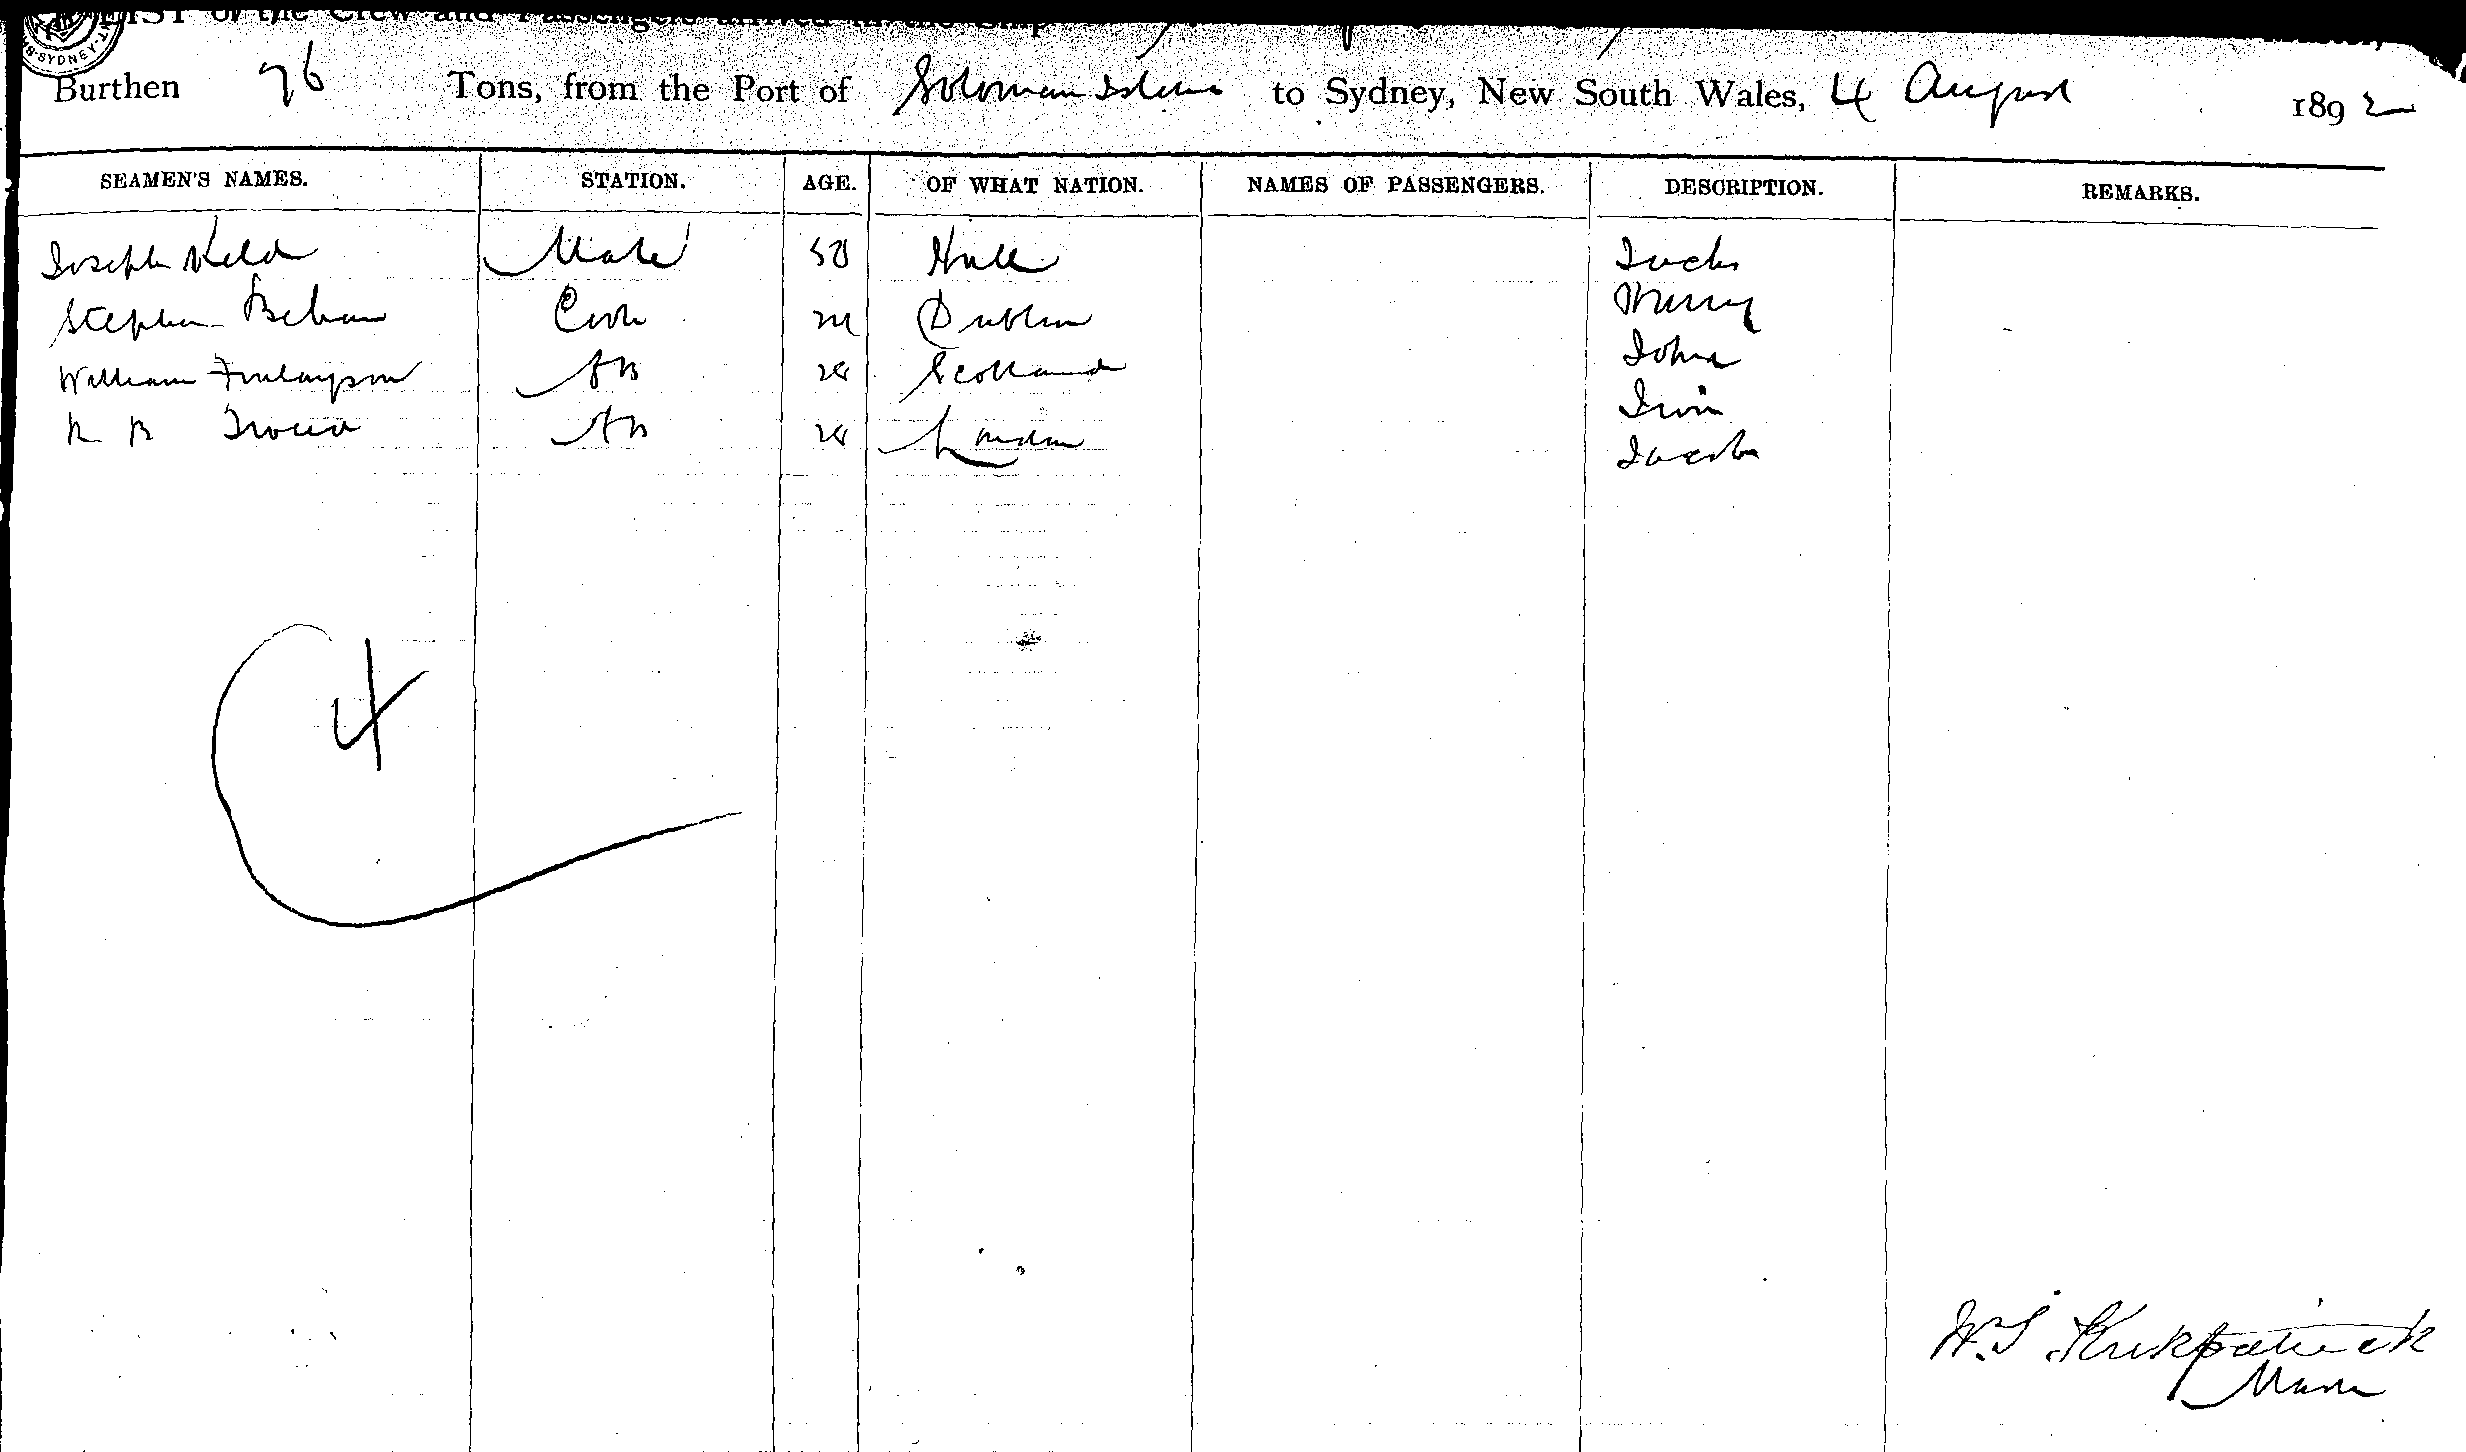 LIST of the Crew and Passengers arrived in the Ship
SYDNEY
Burthen 76 Tons, from the Port of Soloman Islans to Sydney, New South Wales, 4 August 1892
SEAMEN'S NAMES. STATION. AGE. OF WHAT NATION. NAMES OF PASSENGERS. DESCRIPTION. REMARKS.
Joseph Mate 50 Hull
Stephen Cook Dublin Harry
William Finlayson AB 28 Scotland John
AB 28 London Irvin
Jacob
4
Kirkpatrick
Master